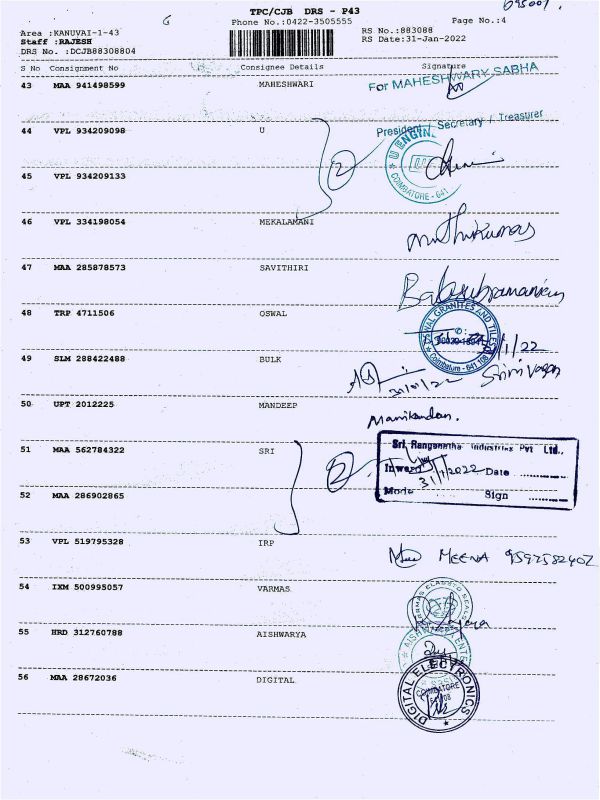 TPC/CJB DRS - P43
Area :KANUVAI-1-43 6 Phone No.:0422-3505555 Page No.:4
Staff :RAJESH RS No.:883088
DRS No. :DCJB88308804 RS Date:31-Jan-2022
S No Consignment No Consignee Details Signature
43 MAA 941498599 MAHESHWARI For MAHESHWARY SABHA
President / Secretary / Treasurer
44 VPL 934209098 U 2 U ENGIN
45 VPL 934209133 COIMBATORE - 641
46 VPL 334198054 MEKALAMANI Muthukumar
47 MAA 285878573 SAVITHIRI Balasubramaniam
48 TRP 4711506 OSWAL GRANITES AND TILES
/1/22
Coimbatore - 641 108
49 SLM 288422488 BULK 31/01/22 Srinivasan
50 UPT 2012225 MANDEEP Manikandan.
51 MAA 562784322 SRI 2 Sri Ranganatha Industries Pvt Ltd.,
Inward 31/1/2022 Date
52 MAA 286902865 Mode Sign
53 VPL 519795328 IRP MEENA 9597582402
54 IXM 500995057 VARMAS
55 HRD 312760788 AISHWARYA
56 MAA 28672036 DIGITAL DIGITAL ELECTRONICS
COIMBATORE